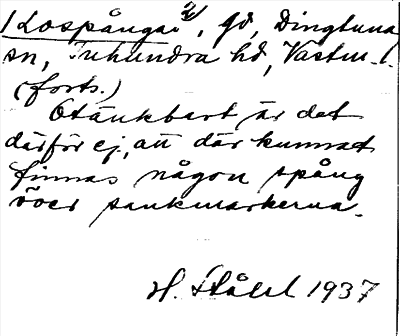 Lospångan 2), gd, Dingtuna
sn, Tuhundra hd, Västm. l.
(forts.)
Otänkbart är det
därför ej, att där kunnat
finnas någon spång
över sankmarkerna.
H. Ståhl 1937